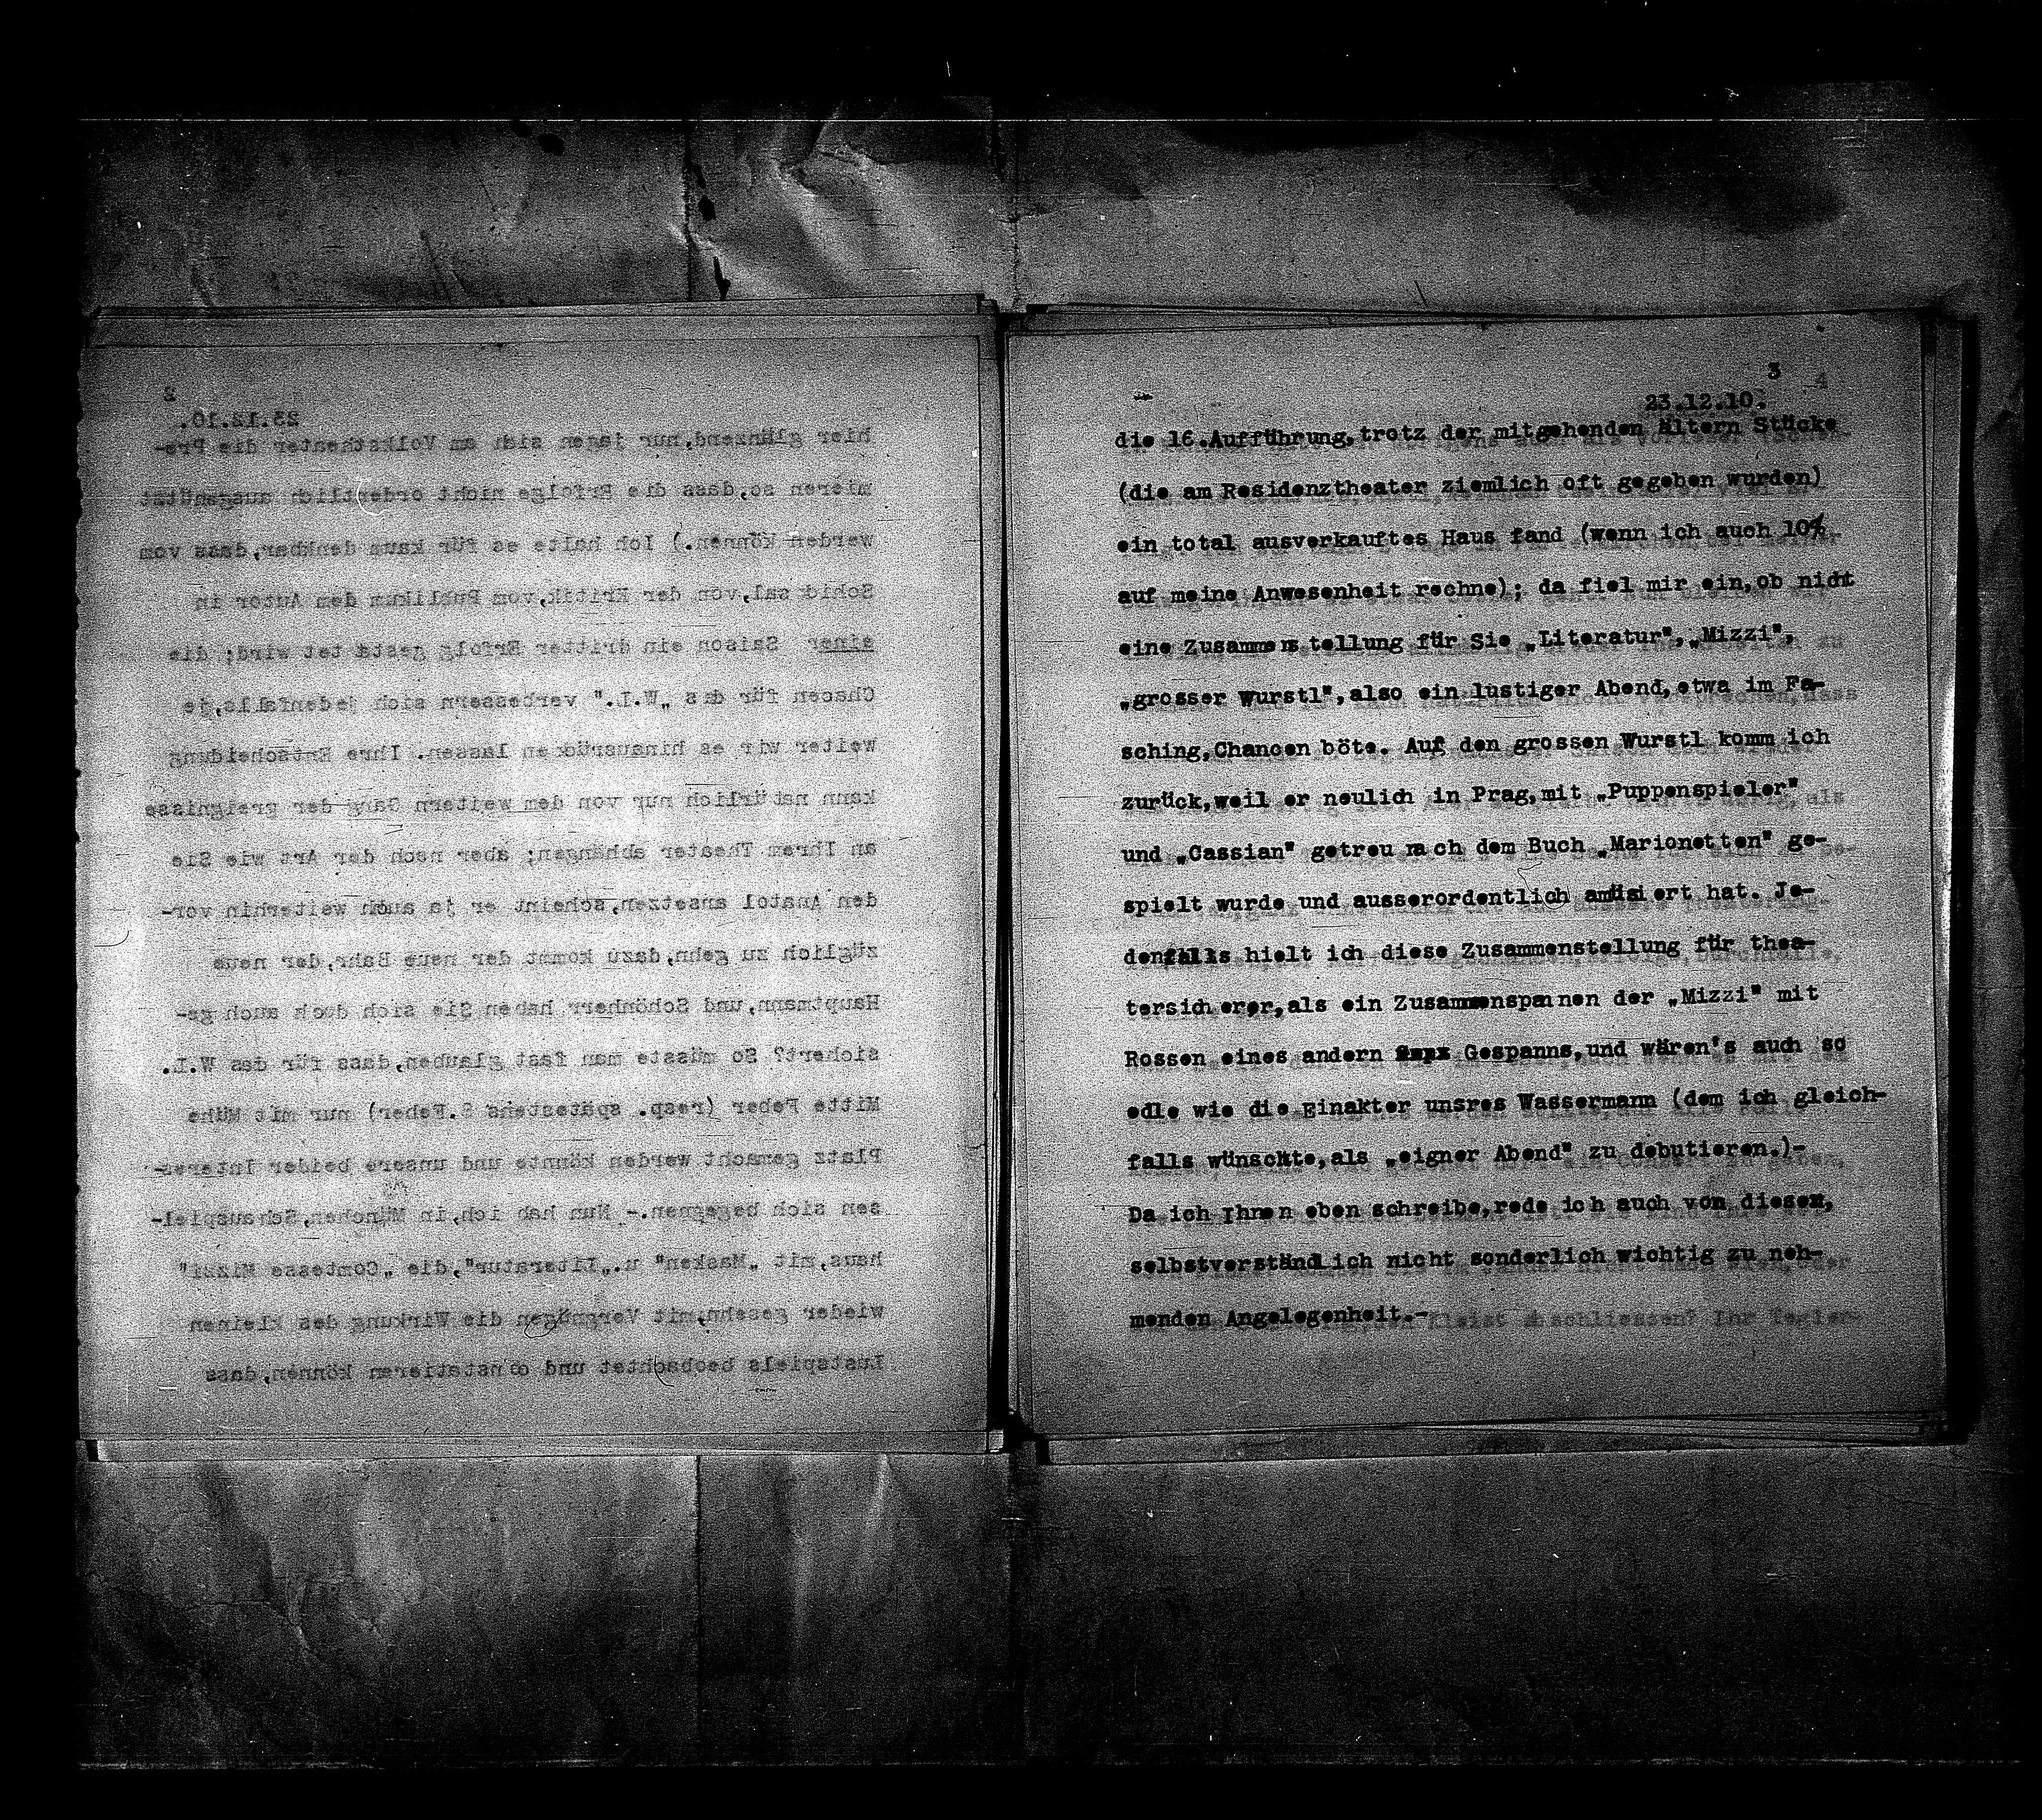 2
23.12.10.
hier glänzend, nur jagen sich am Volkstheater die Pre-
mieren so, dass die Erfolge nicht ordentlich ausgenützt
werden können.) Ich halte es für kaum denkbar, dass vom
Schicksal, von der Kritik, vom Publikum dem Autor in
einer Saison ein dritter Erfolg gestattet wird; die
Chacen für das „W.L." verbessern sich jedenfalls, je
weiter wir es hinausrücken lassen. Ihre Entscheidung
kann natürlich nur von dem weitern Gang der Ereignisse
an Ihrem Theater abhängen; aber nach der Art wie Sie
den Anatol ansetzen, scheint er ja auch weiterhin vor-
züglich zu gehn, dazu kommt der neue Bahr, der neue
Hauptmann, und Schönherr haben Sie sich doch auch ge-
sichert? So müsste man fast glauben, dass für das W.L.
Mitte Feber (resp. spätestens 8.Feber) nur mit Mühe
Platz gemacht werden könnte und unsere beider Interes-
sen sich begegnen.- Nun hab ich, in München, Schauspiel-
haus, mit „Masken" u. „Literatur", die „Comtesse Mizzi"
wieder gesehn, mit Vergnügen die Wirkung des kleinen
Lustspiels beobachtet und constatieren können, dass
3
23.12.10.
die 16.Aufführung, trotz der mitgehenden ältern Stücke
(die am Residenztheater ziemlich oft gegeben wurden)
ein total ausverkauftes Haus fand (wenn ich auch 10%
auf meine Anwesenheit rechne); da fiel mir ein, ob nicht
eine Zusammenstellung für Sie „Literatur", „Mizzi",
„grosser Wurstl", also ein lustiger Abend, etwa im Fa-
sching, Chancen böte. Auf den grossen Wurstl komm ich
zurück, weil er neulich in Prag, mit „Puppenspieler"
und „Cassian" getreu nach dem Buch „Marionetten" ge-
spielt wurde und ausserordentlich amüsiert hat. Je-
denfalls hielt ich diese Zusammenstellung für thea-
tersicherer, als ein Zusammenspannen der „Mizzi" mit
Rossen eines andern Gespanns, und wären's auch so
edle wie die Einakter unsres Wassermann (dem ich gleich-
falls wünschte, als „eigner Abend" zu debutieren.)-
Da ich Ihnen eben schreibe, rede ich auch von diesen,
selbstverständlich nicht sonderlich wichtig zu neh-
menden Angelegenheit.-